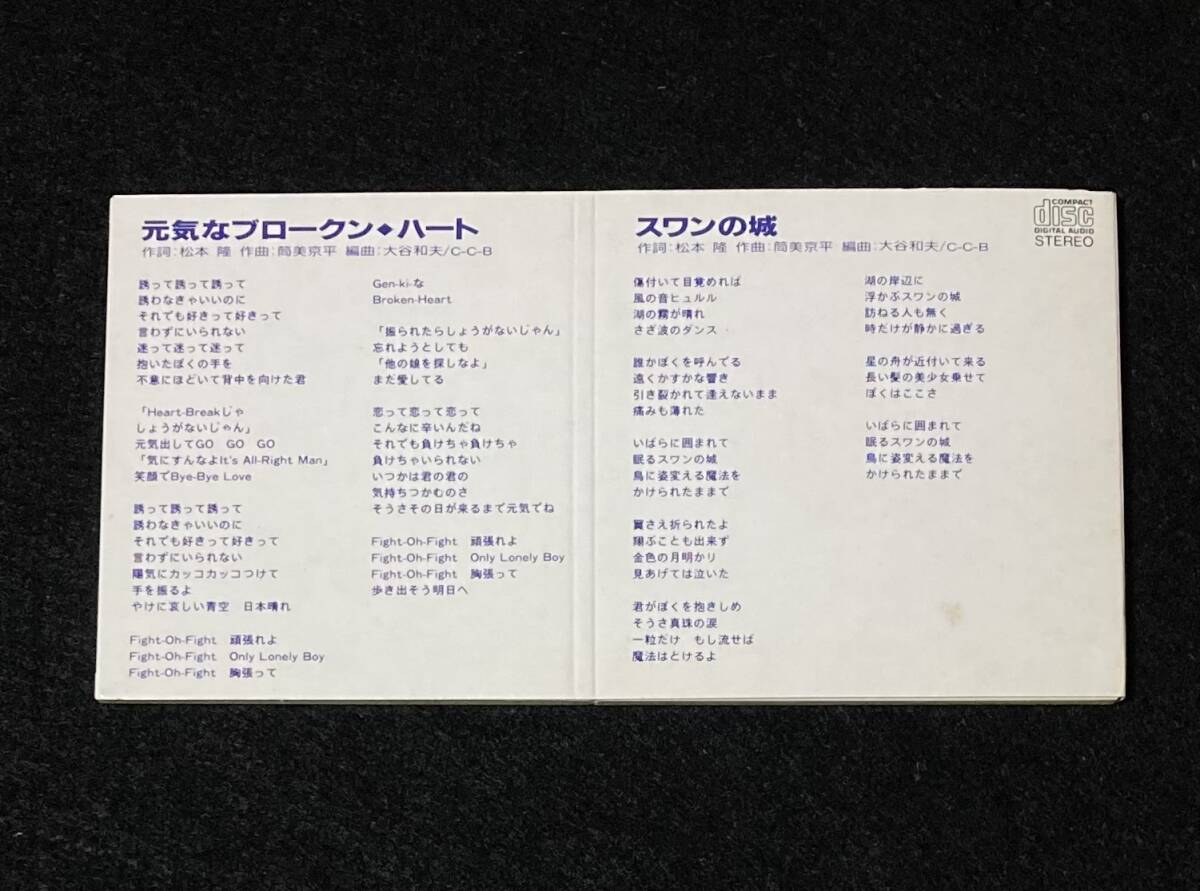 元気なブロークン◆ハート
作詞:松本 隆 作曲:筒美京平 編曲:大谷和夫/C-C-B
誘って誘って誘って
誘わなきゃいいのに
それでも好きって好きって
言わずにいられない
迷って迷って迷って
抱いたぼくの手を
不意にほどいて背中を向けた君
「Heart-Breakじゃ
しょうがないじゃん」
元気出してGO GO GO
「気にすんなよIt's All-Right Man」
笑顔でBye-Bye Love
誘って誘って誘って
誘わなきゃいいのに
それでも好きって好きって
言わずにいられない
陽気にカッコカッコつけて
手を振るよ
やけに哀しい青空 日本晴れ
Fight-Oh-Fight 頑張れよ
Fight-Oh-Fight Only Lonely Boy
Fight-Oh-Fight 胸張って
Gen-ki-な
Broken-Heart
「振られたらしょうがないじゃん」
忘れようとしても
「他の娘を探しなよ」
まだ愛してる
恋って恋って恋って
こんなに辛いんだね
それでも負けちゃ負けちゃ
負けちゃいられない
いつかは君の君の
気持ちつかむのさ
そうさその日が来るまで元気でね
Fight-Oh-Fight 頑張れよ
Fight-Oh-Fight Only Lonely Boy
Fight-Oh-Fight 胸張って
歩き出そう明日へ
スワンの城
作詞:松本 隆 作曲:筒美京平 編曲:大谷和夫/C-C-B
COMPACT
disc
DIGITAL AUDIO
STEREO
傷付いて目覚めれば
風の音ヒュルル
湖の霧が晴れ
さざ波のダンス
誰かぼくを呼んでる
遠くかすかな響き
引き裂かれて逢えないまま
痛みも薄れた
いばらに囲まれて
眠るスワンの城
鳥に姿変える魔法を
かけられたままで
翼さえ折られたよ
翔ぶことも出来ず
金色の月明かり
見あげては泣いた
君がぼくを抱きしめ
そうさ真珠の涙
一粒だけ もし流せば
魔法はとけるよ
湖の岸辺に
浮かぶスワンの城
訪ねる人も無く
時だけが静かに過ぎる
星の舟が近付いて来る
長い髪の美少女乗せて
ぼくはここさ
いばらに囲まれて
眠るスワンの城
鳥に姿変える魔法を
かけられたままで